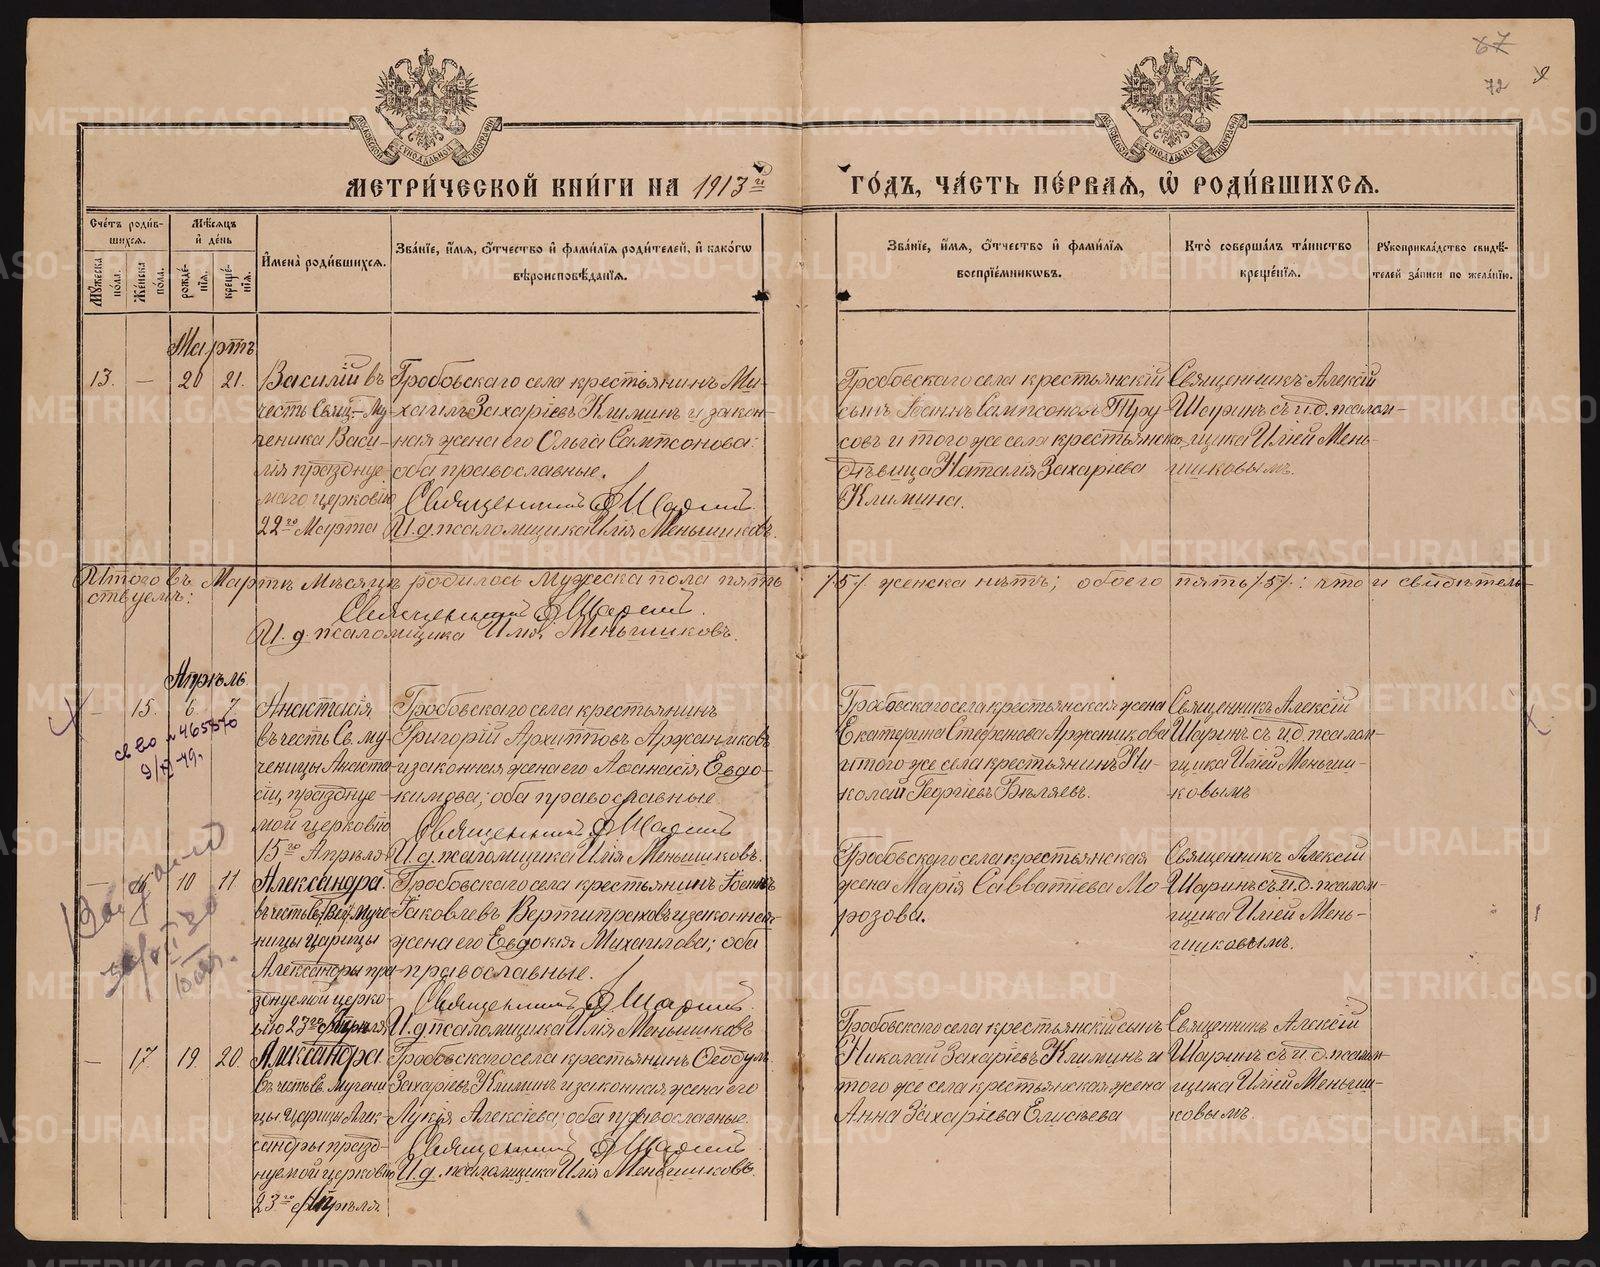 67
72
МЕТРИ́ЧЕСКОЙ КНИ́ГИ НА 1913й ГО́ДЪ, ЧА́СТЬ ПЕ́РВАЯ, Ѿ РОДИ́ВШИХСЯ.
Сче́тъ роди́в-
шихся.
Мꙋжеска по́ла.
Же́нска по́ла.
Мѣ́сяцъ
и҆ де́нь
рожде́-нїя.
креще́-нїя.
И҆мена̀ роди́вшихся.
Зва́нїе, и҆́мя, ѻ҆́тчество и҆ фами́лїя роди́телей, и҆ како́гѡ
вѣроисповѣ́данїя.
Зва́нїе, и҆́мя, ѻ҆́тчество и҆ фами́лїя
воспрїе́мникѡвъ.
Кто̀ соверша́лъ та́инство
креще́нїя.
Рꙋкоприкла́дство свидѣ́-
телей за́писи по жела́нїю.
Мартъ
13. — 20 21.
Василій въ
честь Свящ.-Му-
ченика Васи-
лія празднуе-
маго церковію
22го Марта
Гробовскаго села крестьянинъ Ми-
хаилъ Захаріевъ Климинъ и закон-
ная жена его Ольга Сампсонова:
оба православные.
Священникъ А Шаринъ
И.д. псаломщика Илія Меньшиковъ.
Гробовскаго села крестьянскій
сынъ Іоаннъ Сампсоновъ Тру-
совъ и того же села крестьянска
дѣвица Наталія Захаріева
Климина.
Священникъ Алексій
Шаринъ съ и.д. псалом-
щика Иліей Мень-
шиковымъ.
Итого въ Мартѣ Мѣсяцѣ родилось мужеска пола пять /5/. женска нѣтъ; обоего пять /5/.: что и свидѣтель-
ствуемъ:
Священникъ А Шаринъ.
И.д. псаломщика Илія Меньшиковъ.
Апрѣль.
— 15. 6 7
№ 465370
Анастасія
въ честь Св. му-
ченицы Анаста-
сіи, празднуе-
мой церковію
15го Апрѣля
Гробовскаго села крестьянинъ
Григорій Архипповъ Аржанниковъ
и законная жена его Аѳанасія Евдо-
кимова; оба православные.
Священникъ А Шаринъ
И.д. псаломщика Илія Меньшиковъ.
Гробовскаго села крестьянская жена
Екатерина Стефанова Аржаникова
и того же села крестьянинъ Ни-
колай Георгіевъ Бѣляевъ.
Священникъ Алексій
Шаринъ съ и.д. псалом-
щика Иліей Меньши-
ковымъ
— 16 10 11
Александра.
въ честь Св. Муче-
ницы Царицы
Александры пра-
зднуемой церко-
вію 23го Апрѣля
Гробовскаго села крестьянинъ Іоаннъ
Іаковлевъ Вертипраховъ и законная
жена его Евдокія Михаилова; оба
православные.
Священникъ А Шаринъ
И.д. псаломщика Илія Меньшиковъ
Гробовскаго села крестьянская
жена Марія Савватіева Мо-
розова.
Священникъ Алексій
Шаринъ съ и.д. псалом-
щика Иліей Мень-
шиковымъ.
— 17 19 20.
Александра.
Въ честь Св. Мучени-
цы Царицы Алек-
сандры празд-
нуемой церковію
23го Апрѣля
Гробовскаго села крестьянинъ Ѳеодулъ
Захаріевъ Климинъ и законная жена его
Лукія Алексіева; оба православные.
Священникъ А Шаринъ
И.д. псаломщика Илія Меньшиковъ.
Гробовскаго села крестьянскій сынъ
Николай Захаріевъ Климинъ и
того же села крестьянская жена
Анна Захаріева Елисѣева
Священникъ Алексій
Шаринъ съ и.д. псалом-
щика Иліей Меньши-
ковымъ.
METRIKI.GASO-URAL.RU